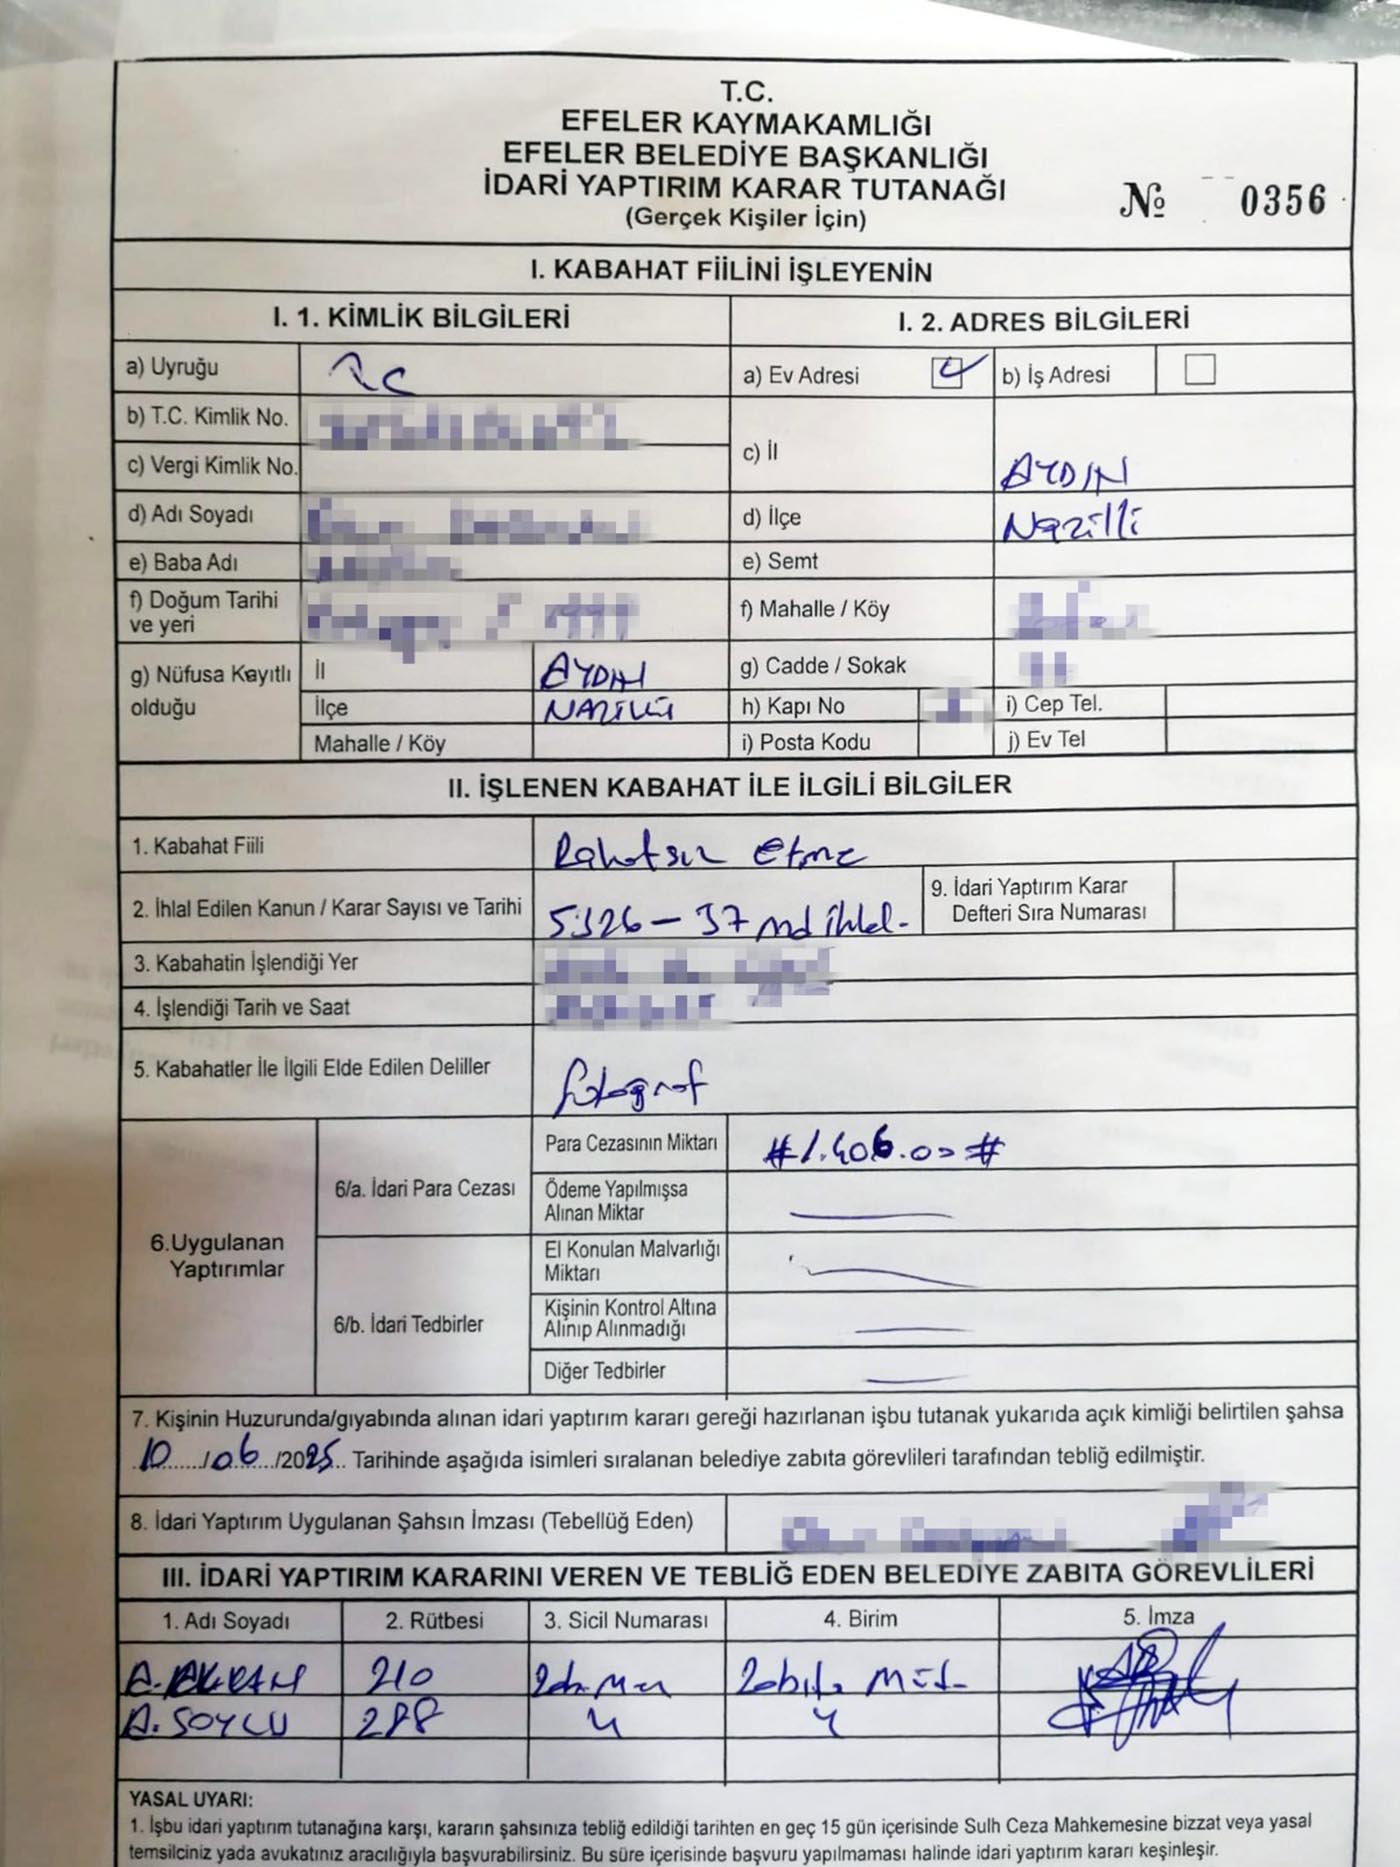 T.C.
EFELER KAYMAKAMLIĞI
EFELER BELEDİYE BAŞKANLIĞI
İDARİ YAPTIRIM KARAR TUTANAĞI
(Gerçek Kişiler İçin)
№ 0356
I. KABAHAT FİİLİNİ İŞLEYENİN
I. 1. KİMLİK BİLGİLERİ
I. 2. ADRES BİLGİLERİ
a) Uyruğu TC
a) Ev Adresi
b) İş Adresi
b) T.C. Kimlik No.
c) Vergi Kimlik No.
c) İl AYDIN
d) Adı Soyadı
d) İlçe Nazilli
e) Baba Adı
e) Semt
f) Doğum Tarihi
ve yeri
f) Mahalle / Köy
g) Nüfusa Kayıtlı
olduğu
İl AYDIN
g) Cadde / Sokak
İlçe NAZİLLİ
h) Kapı No
i) Cep Tel.
Mahalle / Köy
i) Posta Kodu
j) Ev Tel
II. İŞLENEN KABAHAT İLE İLGİLİ BİLGİLER
1. Kabahat Fiili Rahatsız Etme
2. İhlal Edilen Kanun / Karar Sayısı ve Tarihi 5326 - 37 md ihlal.
9. İdari Yaptırım Karar
Defteri Sıra Numarası
3. Kabahatin İşlendiği Yer
4. İşlendiği Tarih ve Saat
5. Kabahatler İle İlgili Elde Edilen Deliller fotoğraf
6.Uygulanan
Yaptırımlar
6/a. İdari Para Cezası
Para Cezasının Miktarı #1.406.00#
Ödeme Yapılmışsa
Alınan Miktar
6/b. İdari Tedbirler
El Konulan Malvarlığı
Miktarı
Kişinin Kontrol Altına
Alınıp Alınmadığı
Diğer Tedbirler
7. Kişinin Huzurunda/gıyabında alınan idari yaptırım kararı gereği hazırlanan işbu tutanak yukarıda açık kimliği belirtilen şahsa
10/06/2025.. Tarihinde aşağıda isimleri sıralanan belediye zabıta görevlileri tarafından tebliğ edilmiştir.
8. İdari Yaptırım Uygulanan Şahsın İmzası (Tebellüğ Eden)
III. İDARİ YAPTIRIM KARARINI VEREN VE TEBLİĞ EDEN BELEDİYE ZABITA GÖREVLİLERİ
1. Adı Soyadı 2. Rütbesi 3. Sicil Numarası 4. Birim 5. İmza
A. 210 Zabıta Müd.
A. SOYLU 288 " "
YASAL UYARI:
1. İşbu idari yaptırım tutanağına karşı, kararın şahsınıza tebliğ edildiği tarihten en geç 15 gün içerisinde Sulh Ceza Mahkemesine bizzat veya yasal
temsilciniz yada avukatınız aracılığıyla başvurabilirsiniz. Bu süre içerisinde başvuru yapılmaması halinde idari yaptırım kararı kesinleşir.